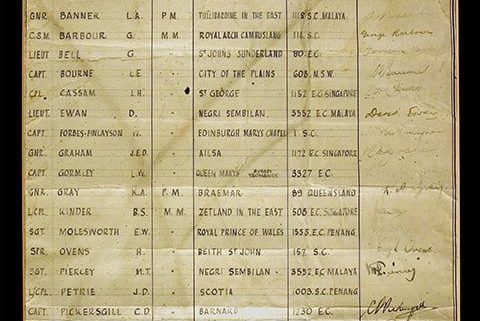 GNR. BANNER L.A. P.M. TULLIBARDINE IN THE EAST 1118 S.C. MALAYA.
C.S.M. BARBOUR G. M.M. ROYAL ARCH CAMBUSLANG 114 S.C. George Barbour
LIEUT BELL G. " ST JOHNS SUNDERLAND 80 E.C.
CAPT. BOURNE L.E. " CITY OF THE PLAINS 608 N.S.W.
CPL. CASSAM L.H. " ST GEORGE 1152 E.C. SINGAPORE
LIEUT. EWAN D. " NEGRI SEMBILAN 3552 E.C. MALAYA David Ewan
CAPT. FORBES-FINLAYSON W. " EDINBURGH MARYS CHAPEL 1 S.C.
GNR. GRAHAM J.E.D. " AILSA 1172 E.C. SINGAPORE
CAPT. GORMLEY L.W. " QUEEN MARYS 3327 E.C.
GNR. GRAY K.A. P.M. BRAEMAR 89 QUEENSLAND
L/CPL. KINDER B.S. M.M. ZETLAND IN THE EAST 508 E.C. SINGAPORE
SGT. MOLESWORTH E.W. " ROYAL PRINCE OF WALES 1555 E.C. PENANG
SPR. OVENS H. " BEITH ST JOHN 157 S.C. Hugh Ovens
SGT. PIERCEY M.T. " NEGRI SEMBILAN 3552 E.C. MALAYA
L/CPL. PETRIE J.D. " SCOTIA 1003 S.C. PENANG
CAPT. PICKERSGILL C.D. " BARNARD 1230 E.C. C D Pickersgill